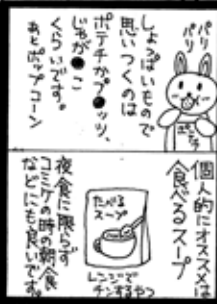 パリ
パリ
しょっぱいもので
思いつくのは
ポテチかプ●ッツ、
じゃが●こ
くらいです。
あとポップコーン
個人的にオススメは
食べるスープ
たべる
スープ
レンジで
チンするやつ
夜食に限らず
コミケの時の朝食
などにも良いです。